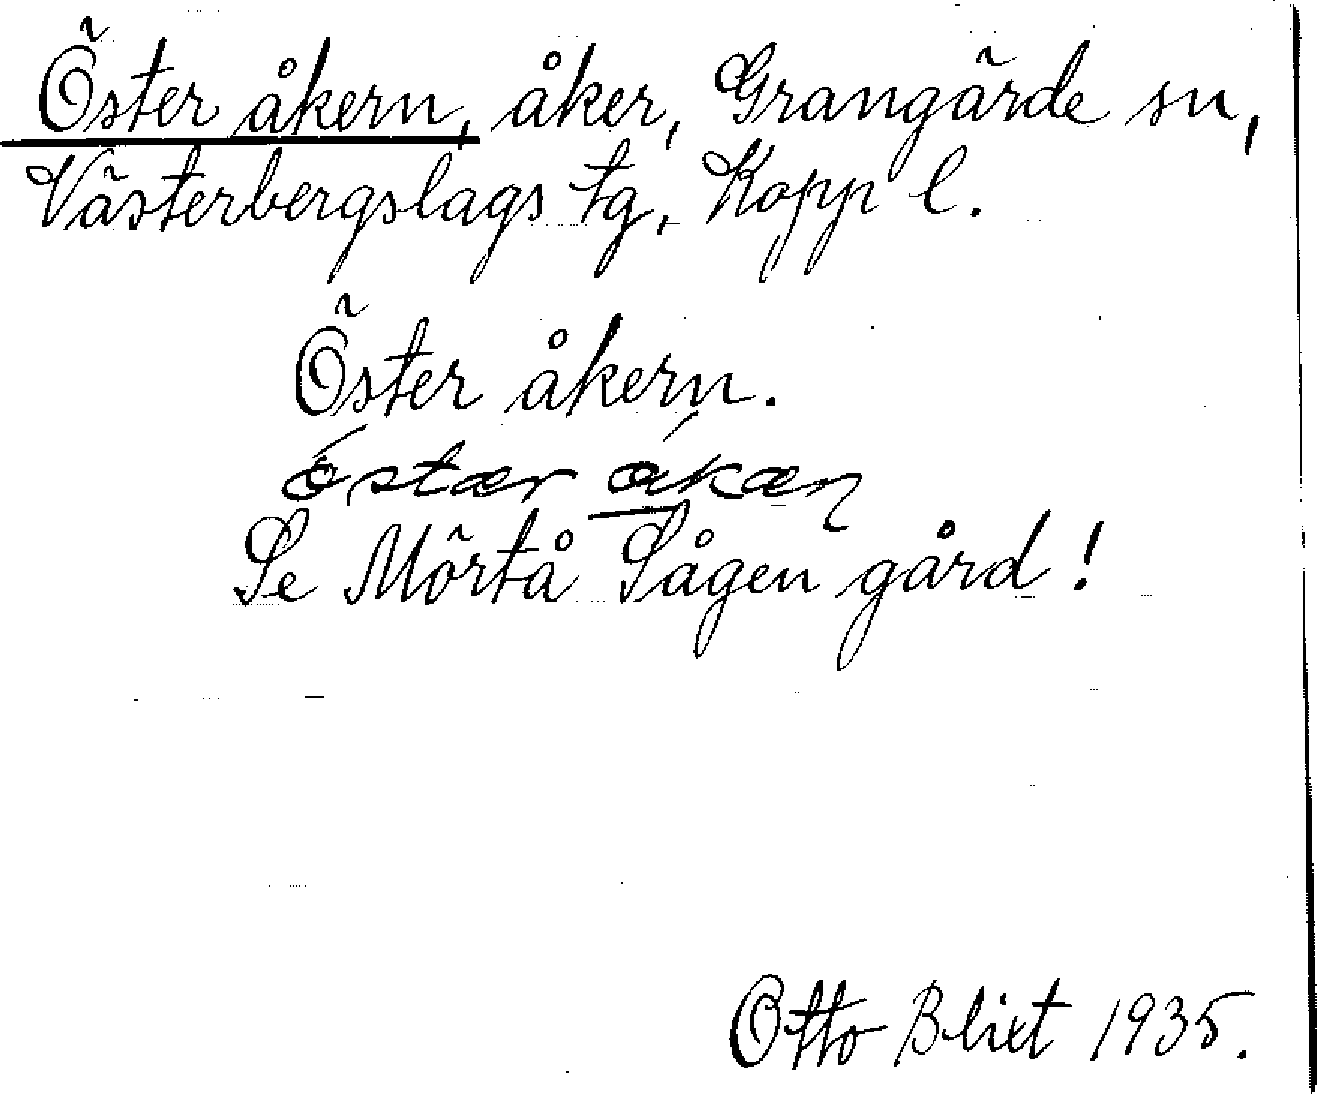 Öster åkern, åker, Grangärde sn,
Västerbergslags tg, Kopp l.
Öster åkern.
óstær
Se Mörtå Sågen gård!
Otto Blixt 1935.